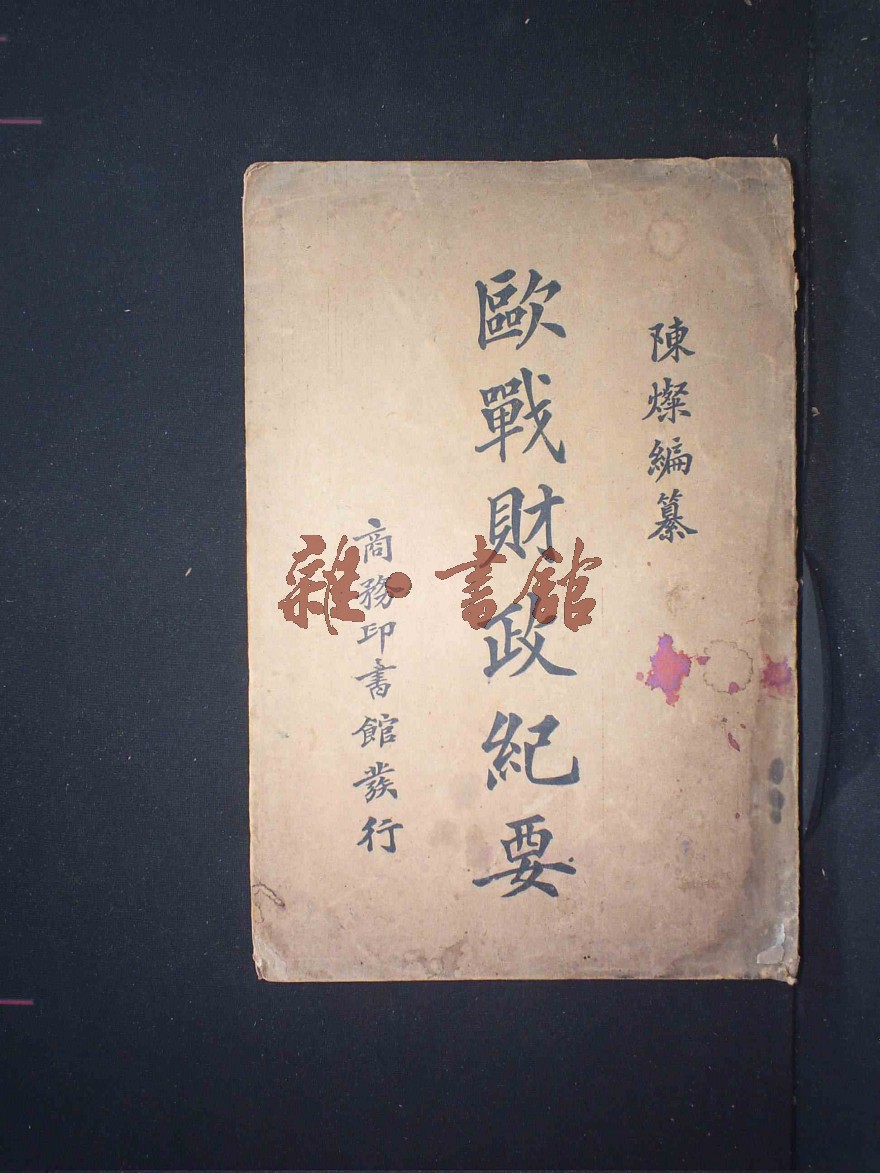 陳燦編纂
歐戰財政紀要
商務印書館發行
雜·書館